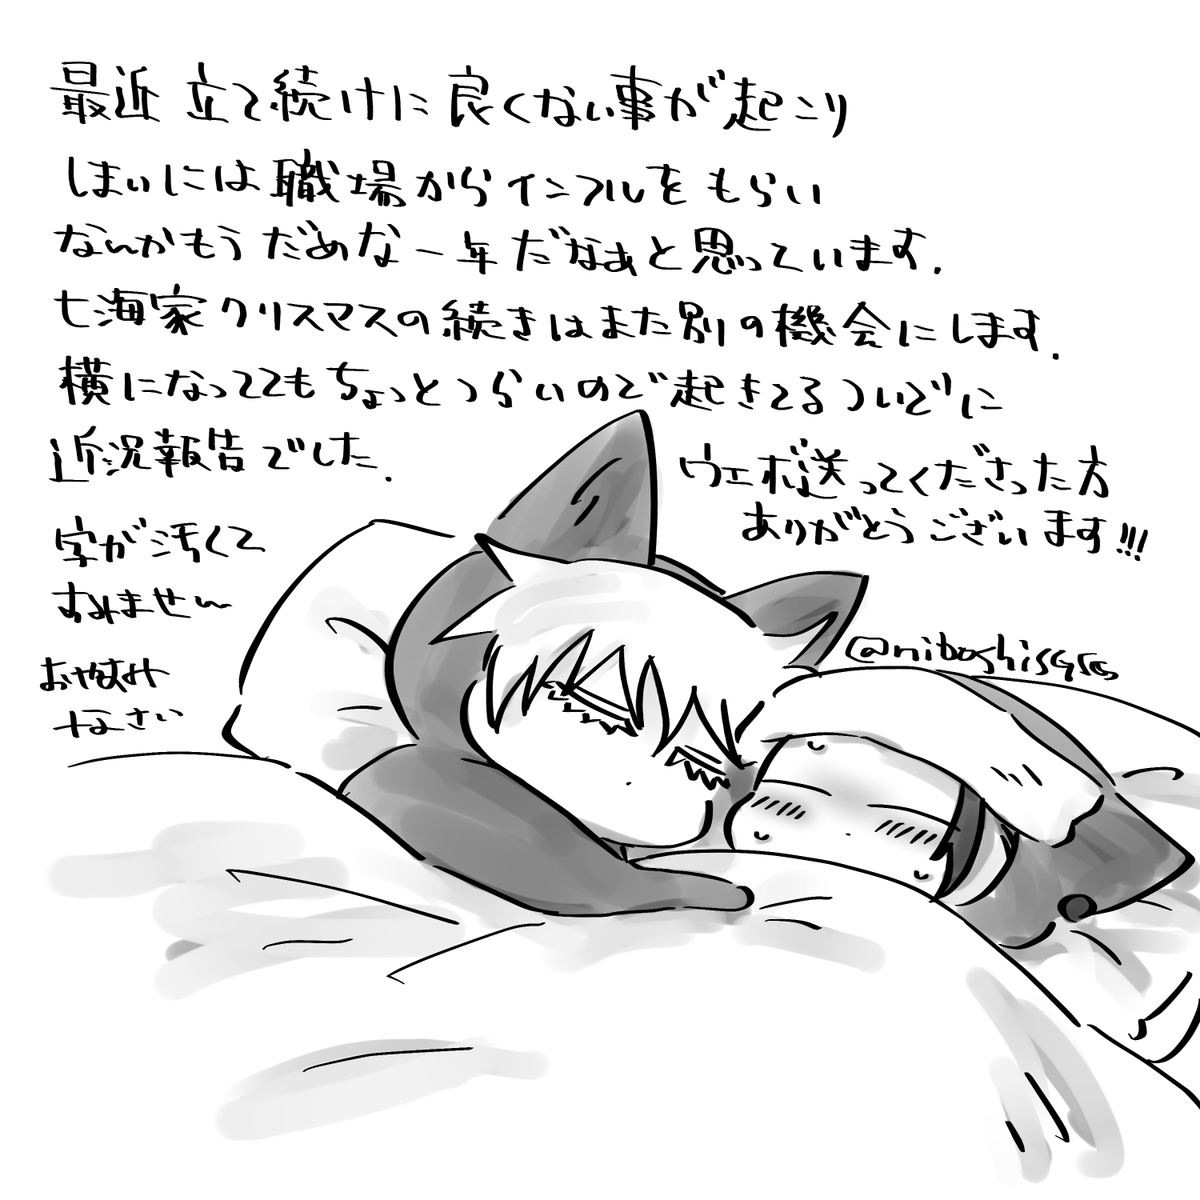 最近 立て続けに良くない事が起こり
しまいには職場からインフルをもらい
なんかもうだめな一年だなぁと思っています.
七海家クリスマスの続きはまた別の機会にします.
横になっててもちょっとつらいので起きてるついでに
近況報告でした.
ウェボ送ってくださった方
ありがとうございます!!!
字が汚くて
すみません
おやすみ
なさい